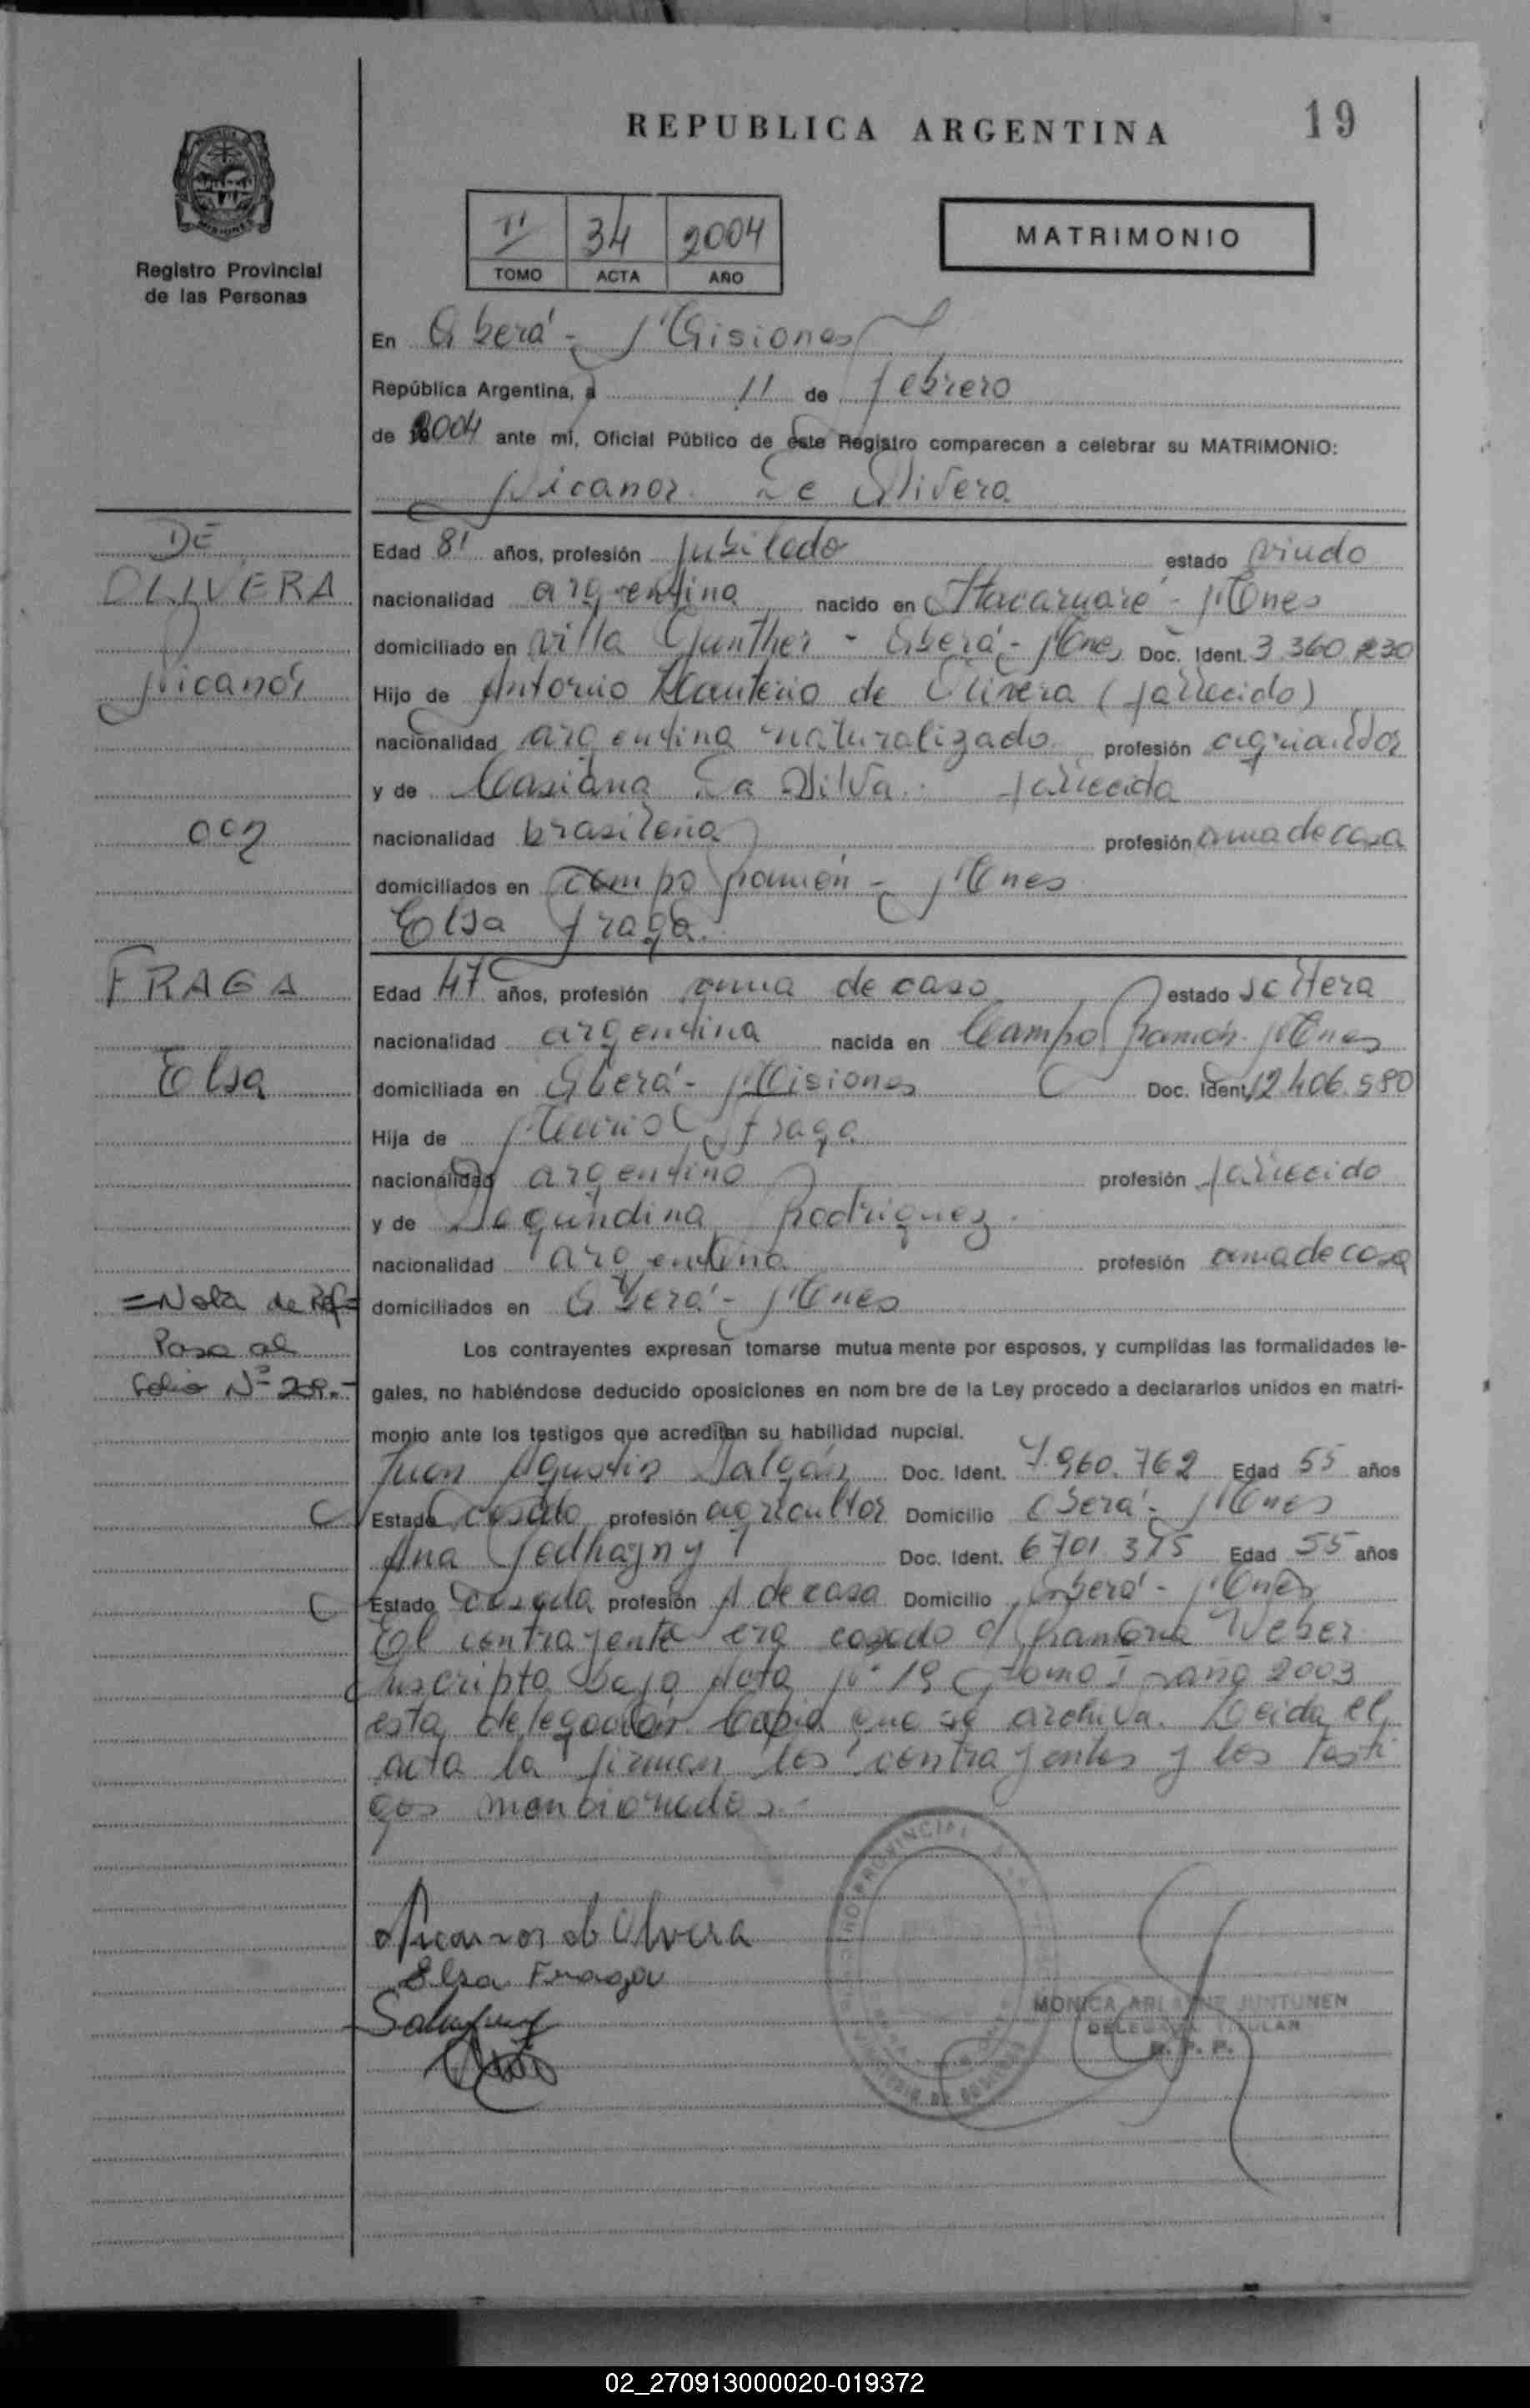 REPUBLICA ARGENTINA
19
Registro Provincial
de las Personas
II 34 2004
TOMO ACTA AÑO
MATRIMONIO
En Oberá - Misiones
República Argentina, a 11 de febrero
de 2004 ante mí, Oficial Público de este Registro comparecen a celebrar su MATRIMONIO:
Nicanor De Olivera
DE
OLIVERA
Nicanor
con
Edad 81 años, profesión Jubilado estado viudo
nacionalidad argentina nacido en Itacaruaré - Mnes
domiciliado en Villa Gunther - Oberá - Mnes Doc. Ident. 3.360.
Hijo de Antonio de Olivera (fallecido)
nacionalidad argentina naturalizado profesión
y de da Silva fallecida
nacionalidad brasileña profesión ama de casa
domiciliados en Campo Ramón - Mnes
Elsa Fraga
FRAGA
Elsa
Edad 47 años, profesión ama de casa estado soltera
nacionalidad argentina nacida en Campo Ramón - Mnes
domiciliada en Oberá - Misiones Doc. Ident. 12.406.580
Hija de Mario Fraga
nacionalidad argentino profesión fallecido
y de Segundina Rodriguez
nacionalidad argentina profesión ama de casa
domiciliados en Oberá - Mnes
=Nota de Ref=
Pasa al
folio Nº
Los contrayentes expresan tomarse mutua mente por esposos, y cumplidas las formalidades le-
gales, no habiéndose deducido oposiciones en nom bre de la Ley procedo a declararlos unidos en matri-
monio ante los testigos que acreditan su habilidad nupcial.
Juan Agustin Doc. Ident. 7.960.762 Edad 55 años
Estado casado profesión agricultor Domicilio Oberá - Mnes
Ana Doc. Ident. 6701 375 Edad 55 años
Estado casada profesión A de casa Domicilio Oberá - Mnes
El contrayente era casado c/ Ramona Weber
inscripto bajo Acta Nº 19 Tomo I año 2003
esta delegación. Copia que se archiva. Leida el
acta la firman los contrayentes y los testi
gos mencionados.
Nicanor de Olivera
Elsa Fraga
MONICA JUNTUNEN
DELEGADA TITULAR
R. P. P.
02_270913000020-019372